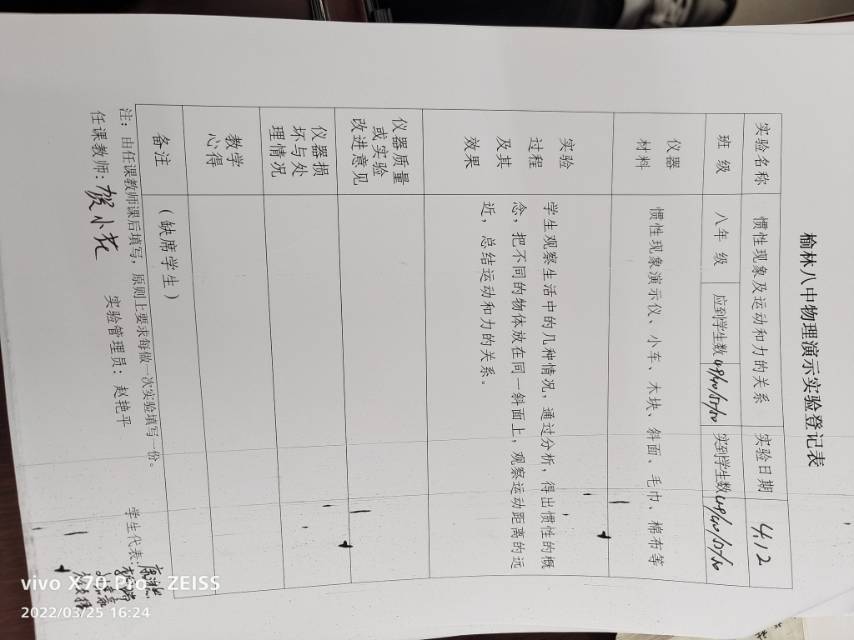 榆林八中物理演示实验登记表
实验名称 惯性现象及运动和力的关系 实验日期 4.12
班 级 八年 级 应到学生数 实到学生数
仪器
材料
惯性现象演示仪、小车、木块、斜面、毛巾、棉布等
实验
过程
及其
效果
学生观察生活中的几种情况，通过分析，得出惯性的概
念，把不同的物体放在同一斜面上，观察运动距离的远
近，总结运动和力的关系。
仪器质量
或实验
改进意见
仪器损
坏与处
理情况
教学
心得
备注 （缺席学生）
注：由任课教师课后填写，原则上要求每做一次实验填写一份。
任课教师：贺小花 实验管理员：赵艳平 学生代表：
vivo X70 Pro · ZEISS
2022/03/25 16:24